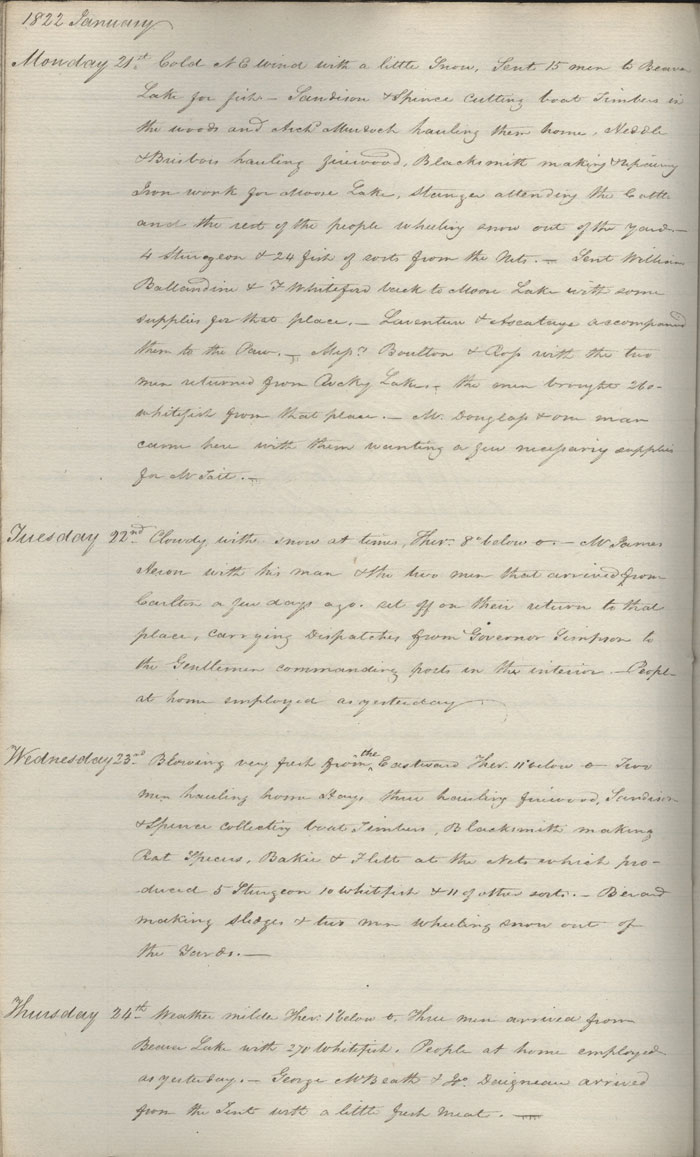 1822 January
Monday 21st Cold N E wind with a little Snow, Sent 15 men to Beaver
Lake for fish – Sandison & Spence Cutting boat Timbers in
the woods and Archd Murdoch hauling them home, Heddle
& Brisbois hauling firewood, Blacksmith making & repairing
Iron work for Moose Lake, Stanger attending the Cattle
and the rest of the people wheeling snow out of the yard. –
4 Sturgeon & 24 fish of sorts from the Nets. – Sent William
Ballandine & J Whiteford back to Moose Lake with some
supplies for that place. – Laventure & accompanied
them to the Paw. – Messrs Boulton & Ross with the two
men returned from Rocky Lake, the men brought 260
whitefish from that place. – Mr. Douglass & one man
came here with them wanting a few necessary supplies
for Mr Tait. –
Tuesday 22nd Clowdy with snow at times, Ther. 8° below 0. – Mr James
Heron with his man & the two men that arrived from
Carlton a few days ago. set off on their return to that
place, carrying Dispatches from Governor Simpson to
the Gentlemen commanding posts in the interior – People
at home employed as yesterday
Wednesday 23rd Blowing very fresh from the Eastward Ther. 11° below 0 – Two
men hauling home Hay, three hauling firewood, Sandison
& Spence collecting boat Timbers, Blacksmith making
Rat Spears, Bakie & Flett at the Nets which pro-
duced 5 Sturgeon 10 Whitefish & 11 of other sorts. – Berard
making Sledges & two men wheeling snow out of
the Yards. –
Thursday 24th Weather milder Ther. 1° below 0, Three men arrived from
Beaver Lake with 270 Whitefish. People at home employed
as yesterday. – George McBeath & Jo. Daigneau arrived
from the Tent with a little fresh meat. –